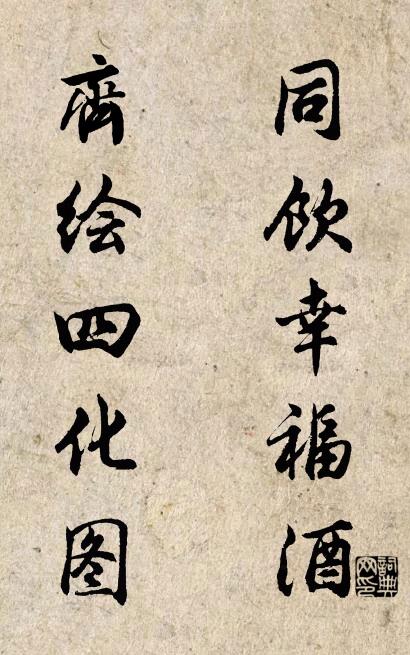 同饮幸福酒
齊绘四化图
詞典网印